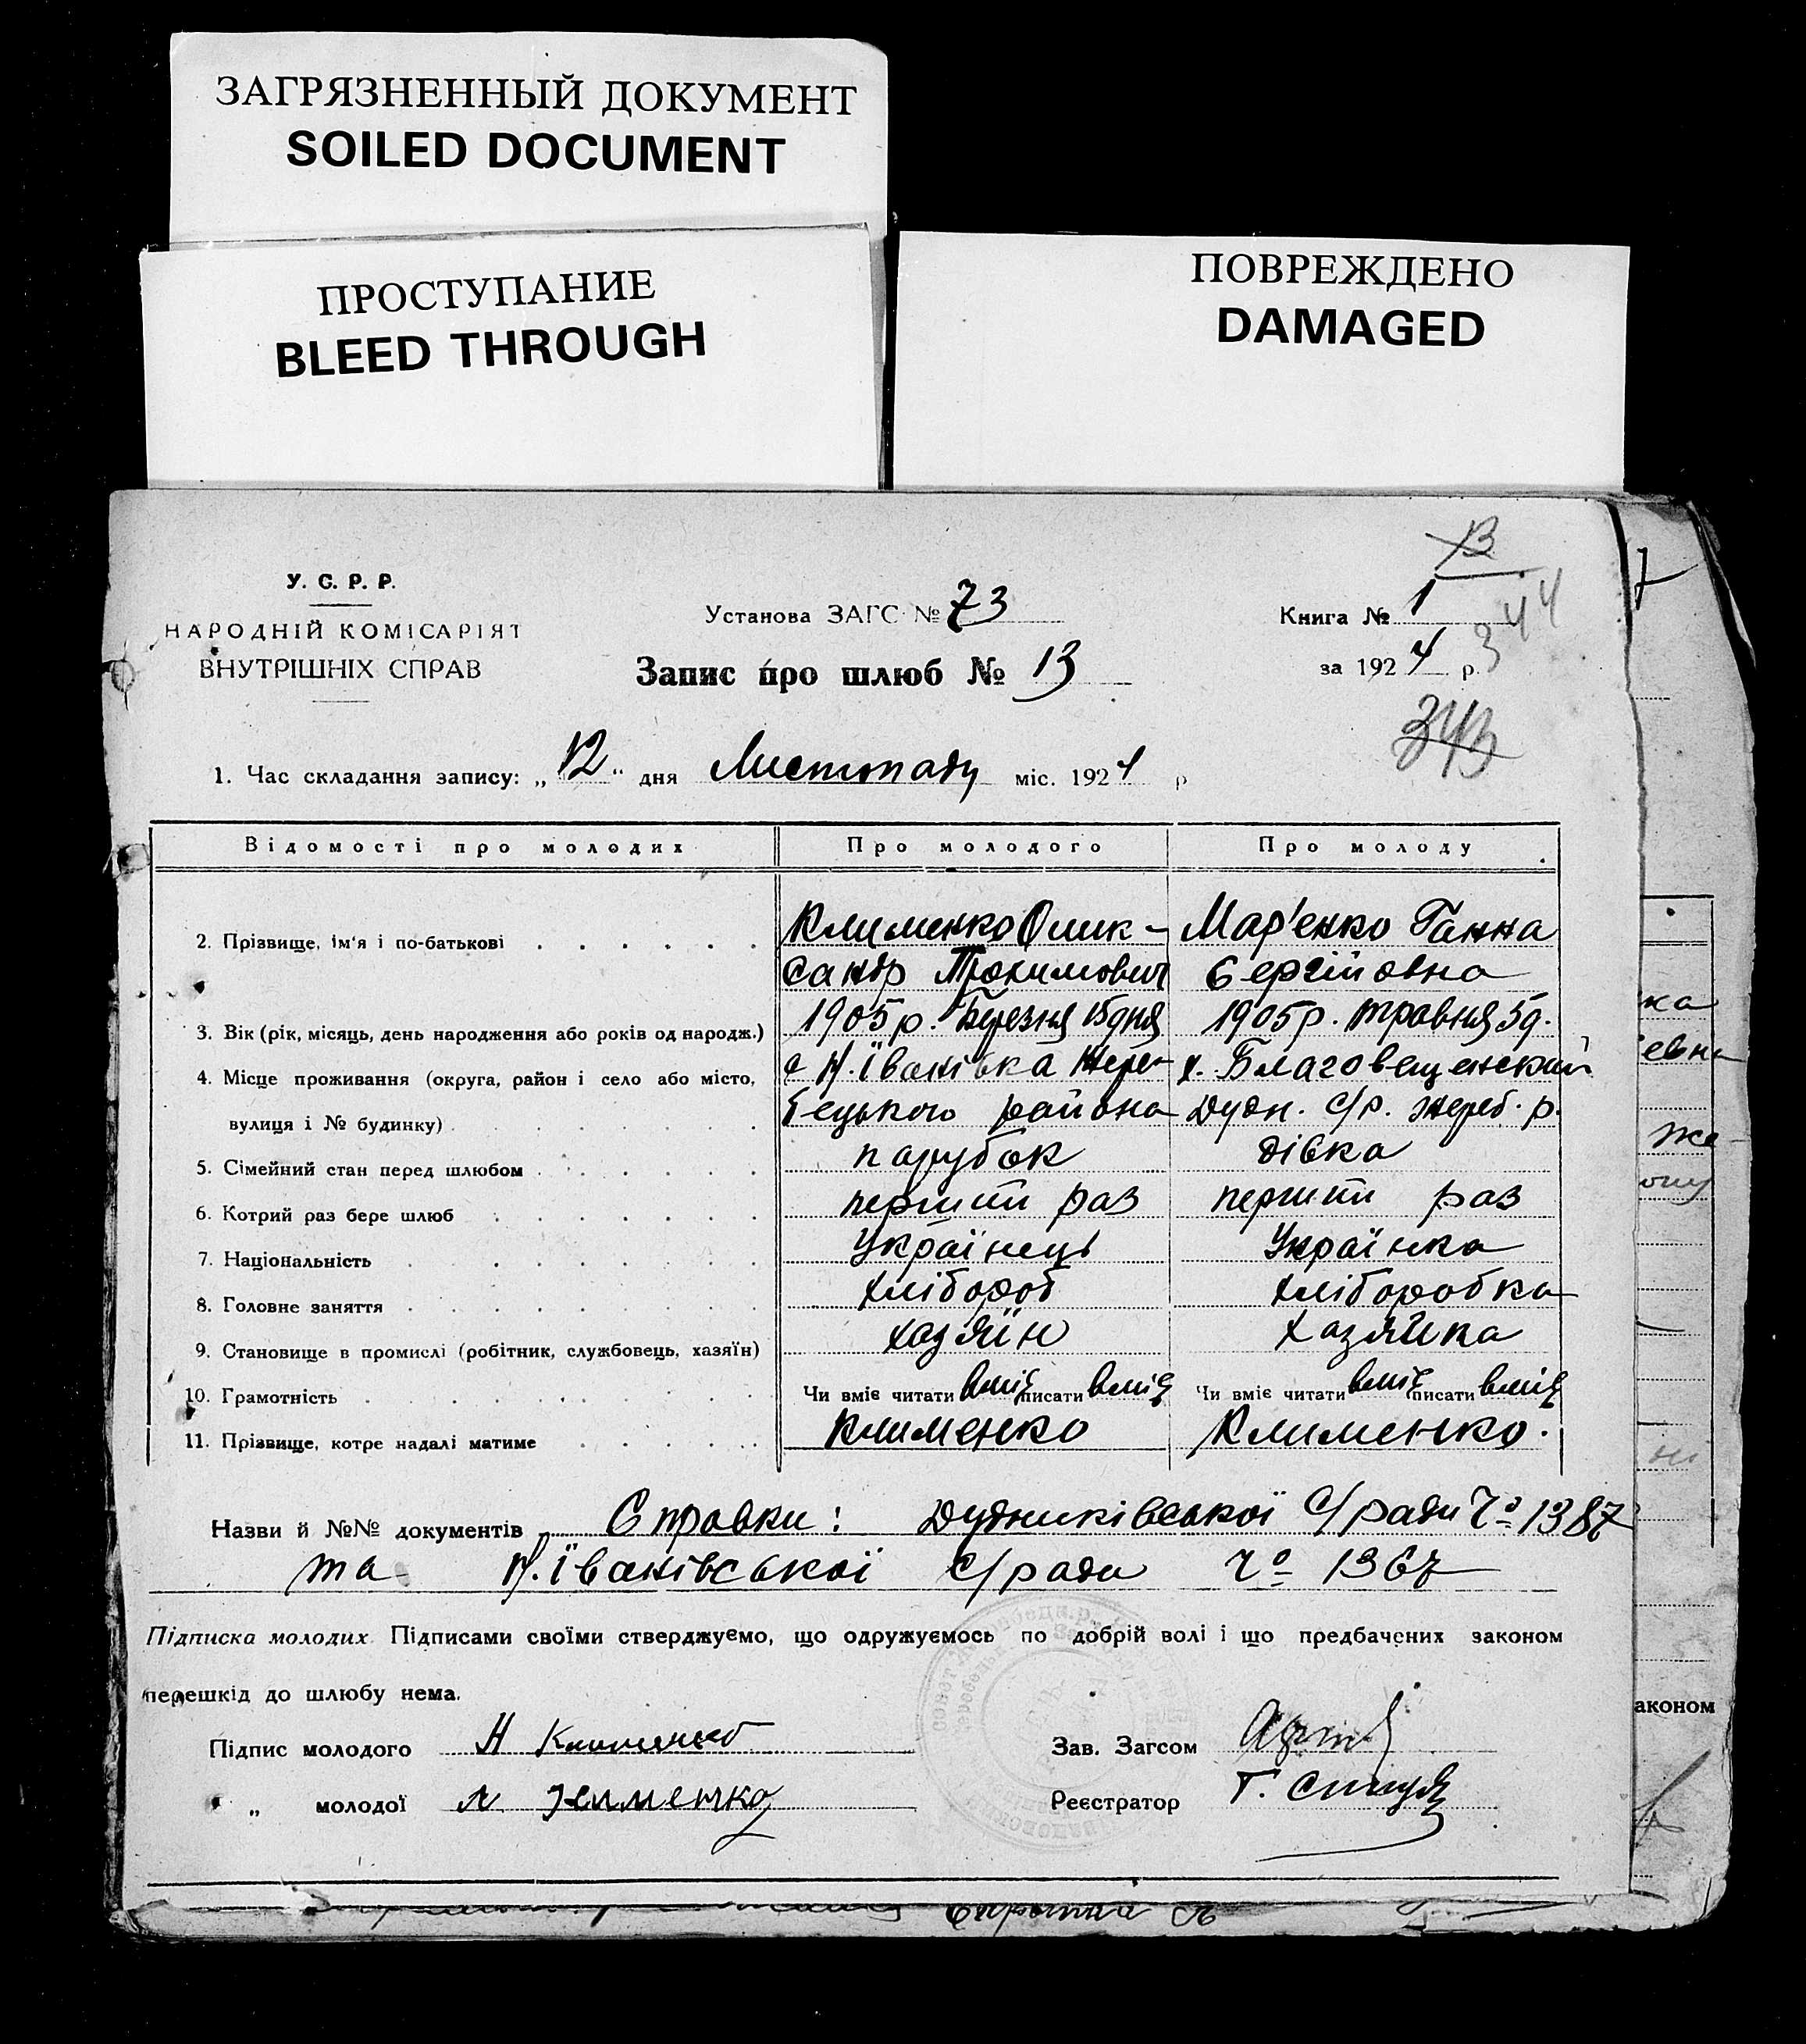 ЗАГРЯЗНЕННЫЙ ДОКУМЕНТ
SOILED DOCUMENT
ПРОСТУПАНИЕ
BLEED THROUGH
ПОВРЕЖДЕНО
DAMAGED
У. С. Р. Р.
НАРОДНІЙ КОМІСАРІЯТ
ВНУТРІШНІХ СПРАВ
Установа ЗАГС № 73
Запис про шлюб № 13
13
Книга № 1
344
за 1924 р.
343
1. Час складання запису: „12“ дня Листопаду міс. 1924 р
Відомості про молодих Про молодого Про молоду
2. Прізвище, ім'я і по-батькові Клименко Олик- Мар'енко Ганна
сандр Трохимович Сергійовна
3. Вік (рік, місяць, день народження або років од народж.) 1905 р. Березня 15 дня 1905 р. травня 5 д.
4. Місце проживання (округа, район і село або місто, с Н. Іванівка Жере- х. Благовещенский
вулиця і № будинку) бецького района Дудн. с/р. жереб. р.
5. Сімейний стан перед шлюбом парубок дівка
6. Котрий раз бере шлюб перший раз перший раз
7. Національність Українець Українка
8. Головне заняття хлібороб хліборобка
9. Становище в промислі (робітник, службовець, хазяїн) хазяїн хазяйка
10. Грамотність Чи вміє читати вміє писати вміє Чи вміє читати вміє писати вміє
11. Прізвище, котре надалі матиме Клименко Клименко.
Назви й №№ документів Справки: Дудниківської С/ради № 1387
та Н. Іванівської с/ради № 1367
Підписка молодих Підписами своїми стверджуємо, що одружуємось по добрій волі і що предбачених законом
перешкід до шлюбу нема.
аконом
Підпис молодого Клименко Зав. Загсом
„ молодої Клименко Реєстратор Г.